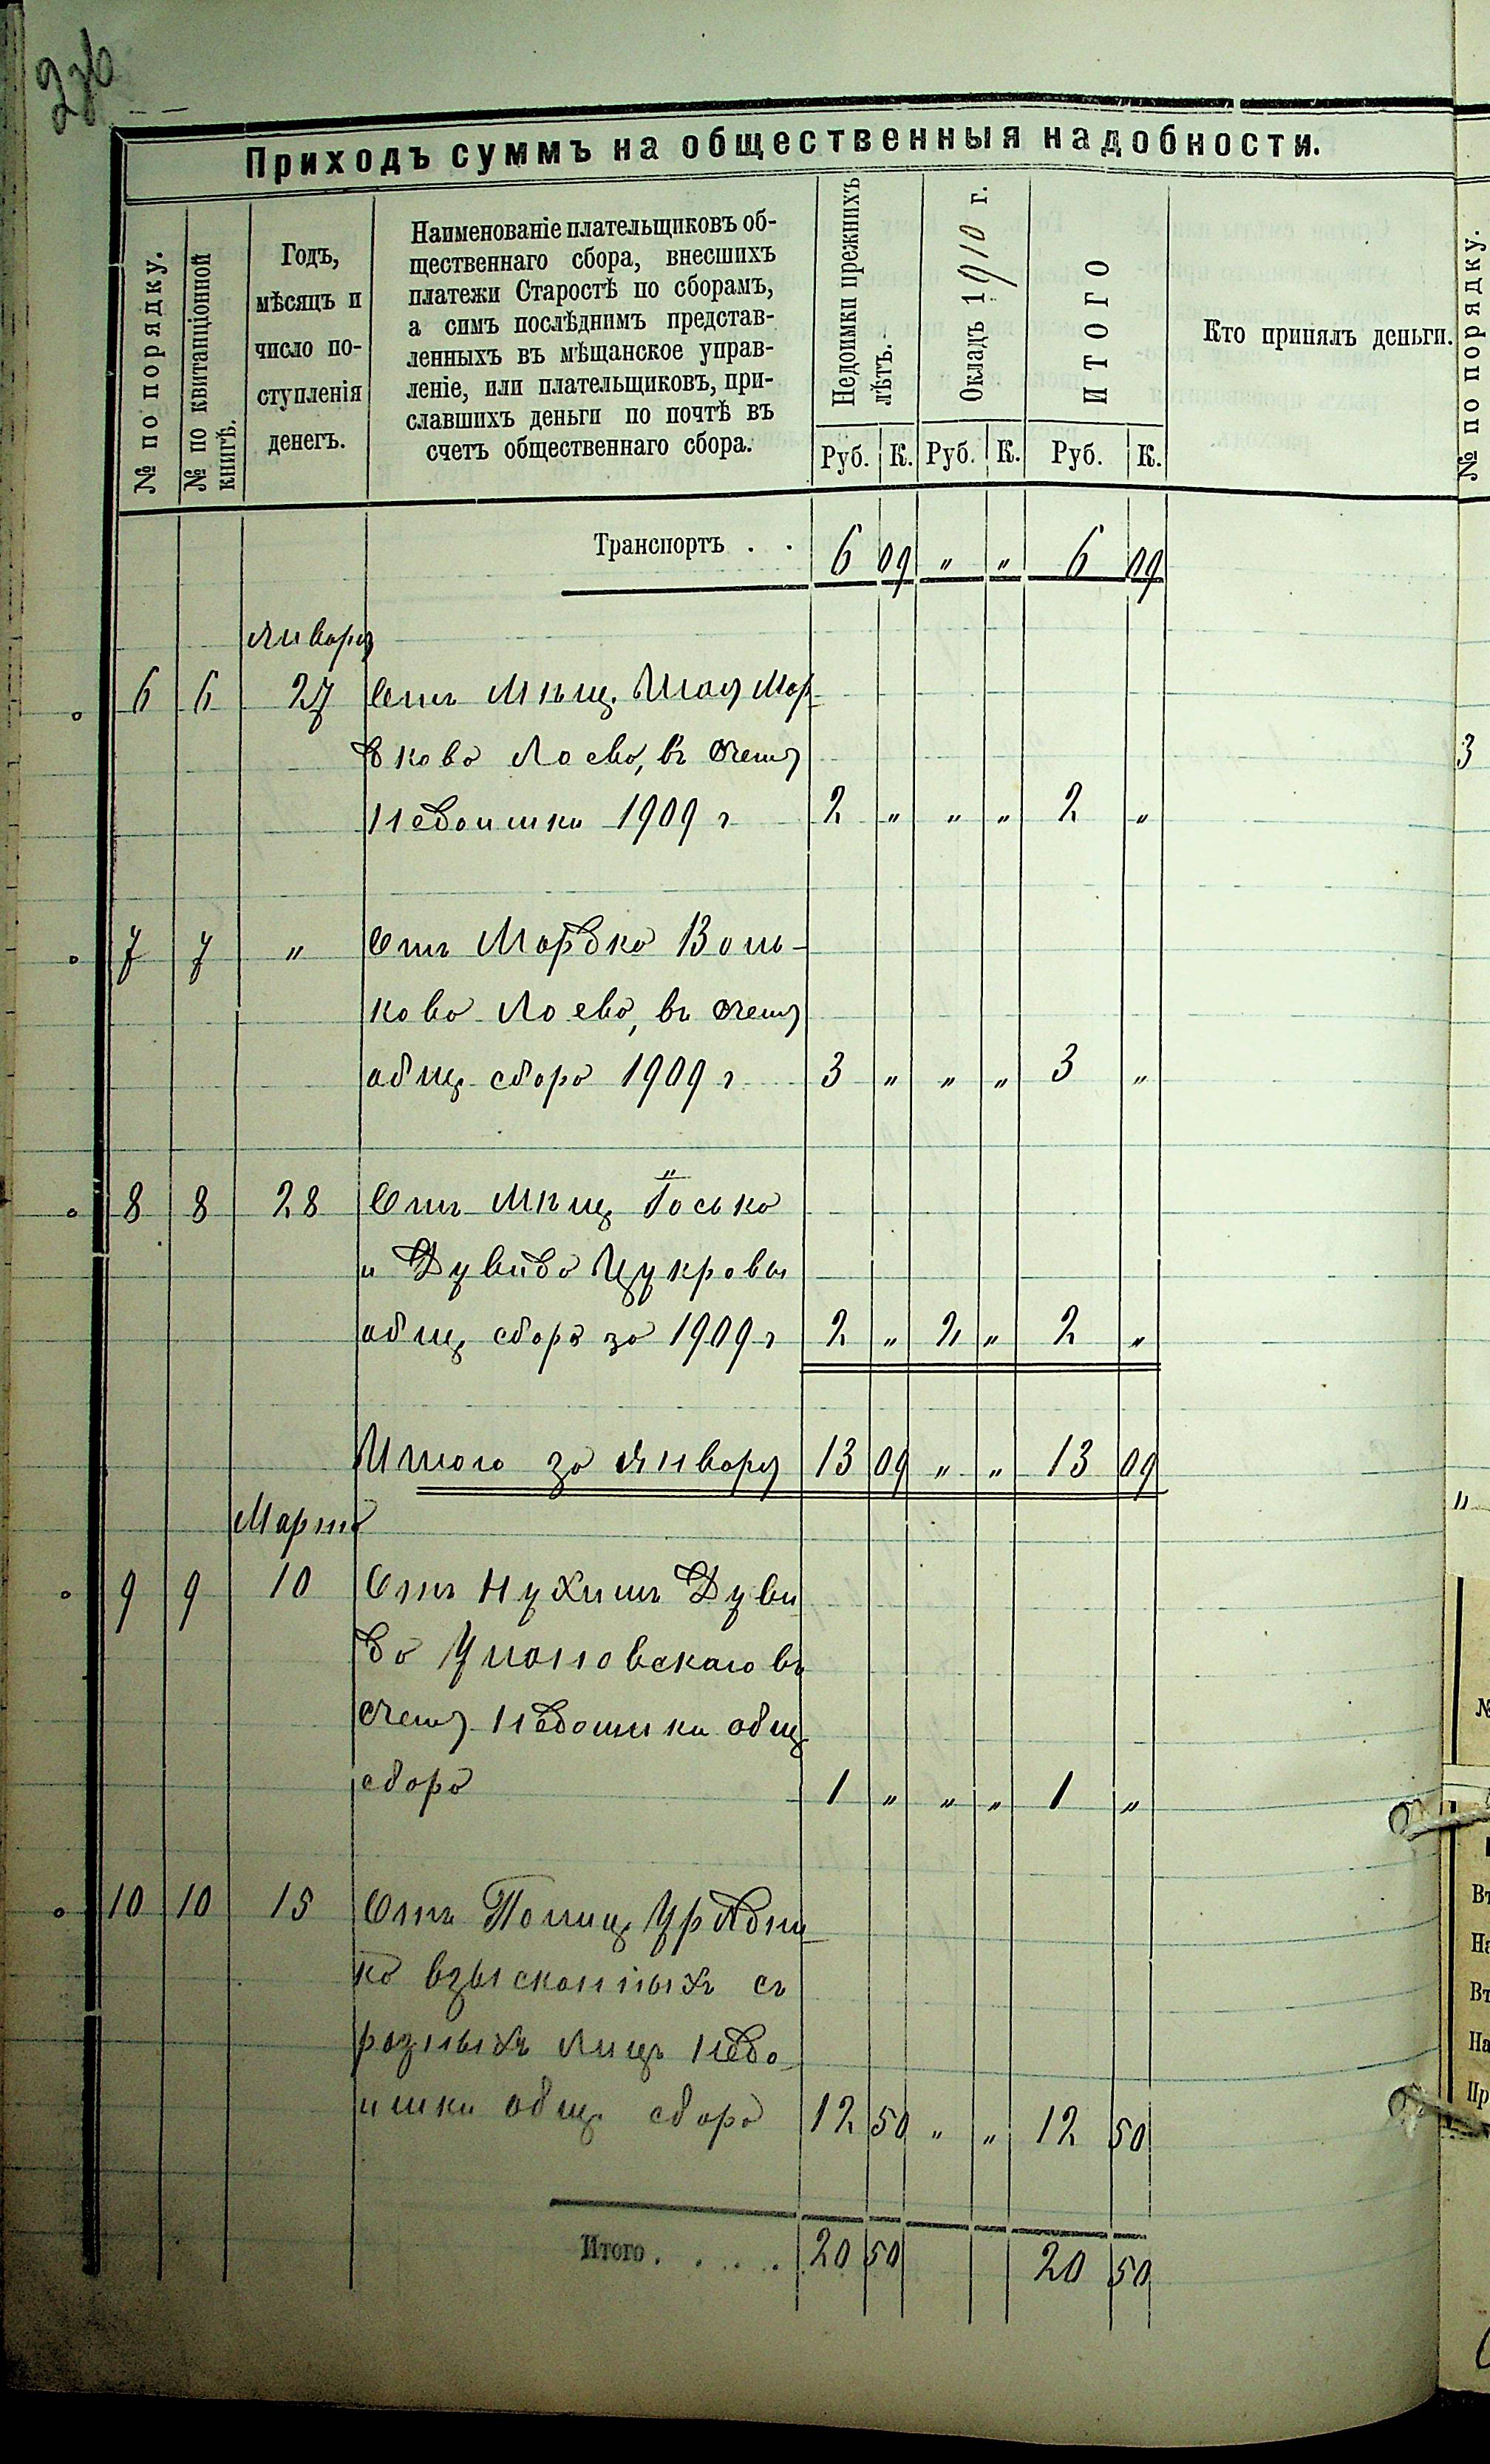 Приходъ суммъ на общественныя надобности.
№ по порядку.
№ по квитанціонной
книгѣ.
Годъ,
мѣсяцъ и
число по-
ступленія
денегъ.
Наименованіе плательщиковъ об-
щественнаго сбора, внесшихъ
платежи Старостѣ по сборамъ,
а симъ послѣднимъ представ-
ленныхъ въ мѣщанское управ-
леніе, или плательщиковъ, при-
славшихъ деньги по почтѣ въ
счетъ общественнаго сбора.
Недоимки прежнихъ
лѣтъ.
Окладъ 1910 г.
ИТОГО
Кто принялъ деньги.
Руб. К. Руб. К. Руб. К.
Транспортъ . . 6 09 " " 6 09
Января
6 6 27 Отъ Мѣщ. Мор
дкова Лоева, въ счетъ
недоимки 1909 г 2 " " " 2 "
7 7 " Отъ Мордка Воль-
кова Лоева, въ счетъ
общ. сбора 1909 г 3 " " " 3 "
8 8 28 Отъ Мѣщ. Госька
и Дувида Цукровы
общ. сбора за 1909 г 2 " 2 " 2 "
Итого за Январь 13 09 " " 13 09
Марта
9 9 10 Отъ Нухимъ Дуви
да въ
счетъ недоимки общ.
сбора 1 " " " 1 "
10 10 15 Отъ Полиц. Урядни
ка взысканныхъ съ
разныхъ лицъ недо-
имки общ. сбора 12 50 " " 12 50
Итого . . . . . 20 50 20 50
№ по порядку.
3
"
№
Вт
На
Вт
На
Пр